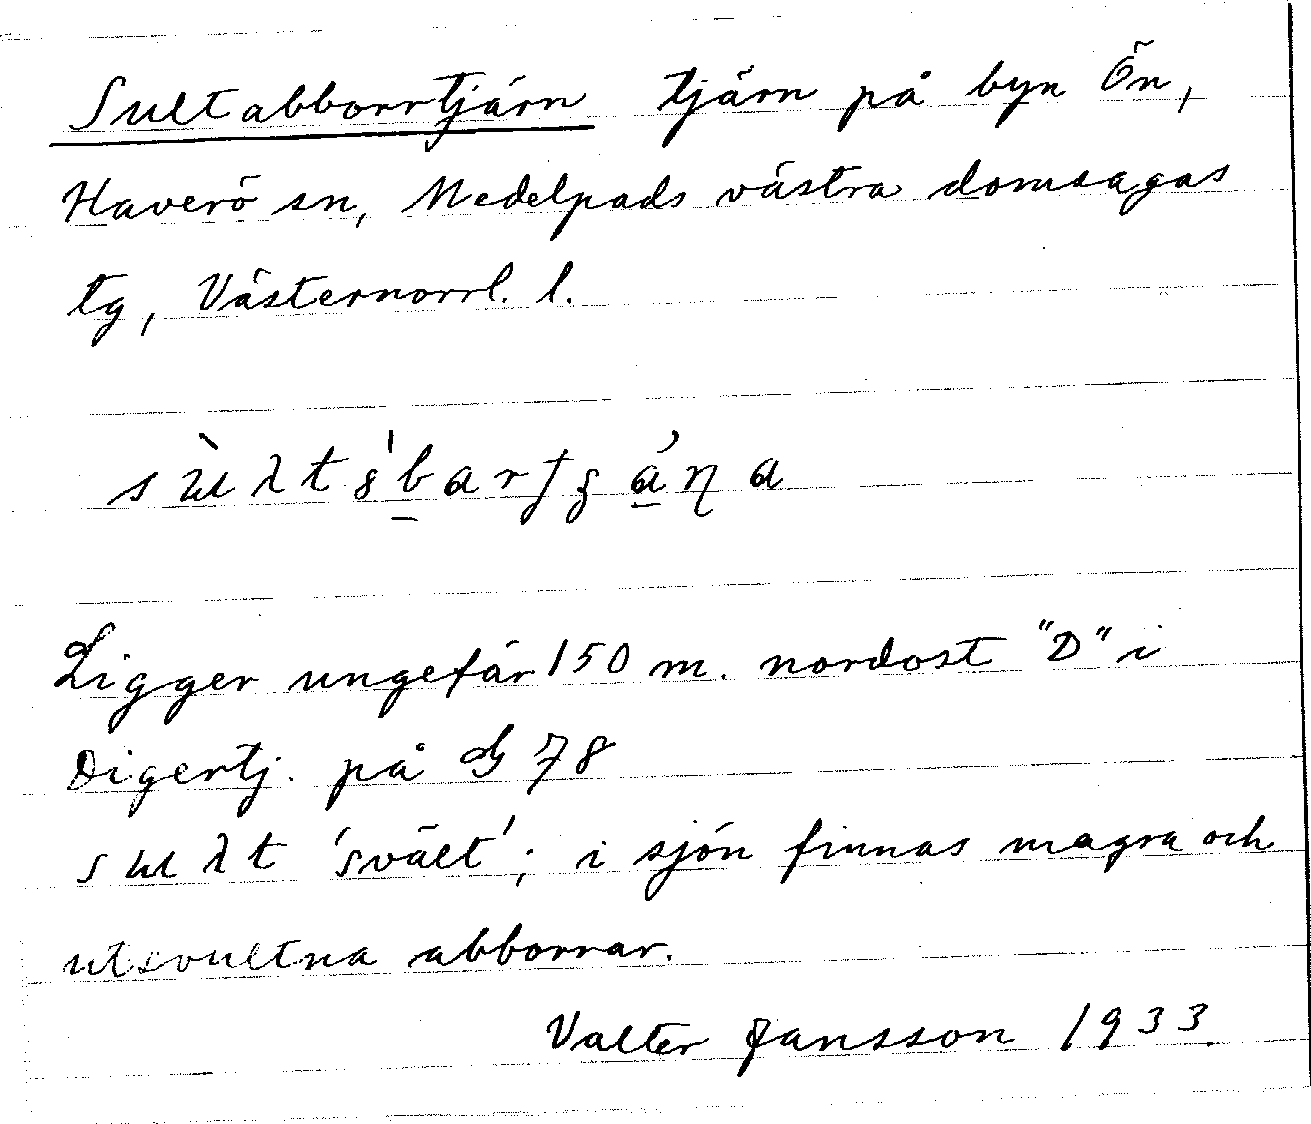 Sultabborrtjärn tjärn på byn Ön,
Haverö sn, Medelpads västra domsagas
tg, Västernorrl. l.
Ligger ungefär 150 m. nordost "D" i
Digertj. på G 78
suλt 'svält'; i sjön finnas magra och
utsvultna abborrar.
Valter Jansson 1933.